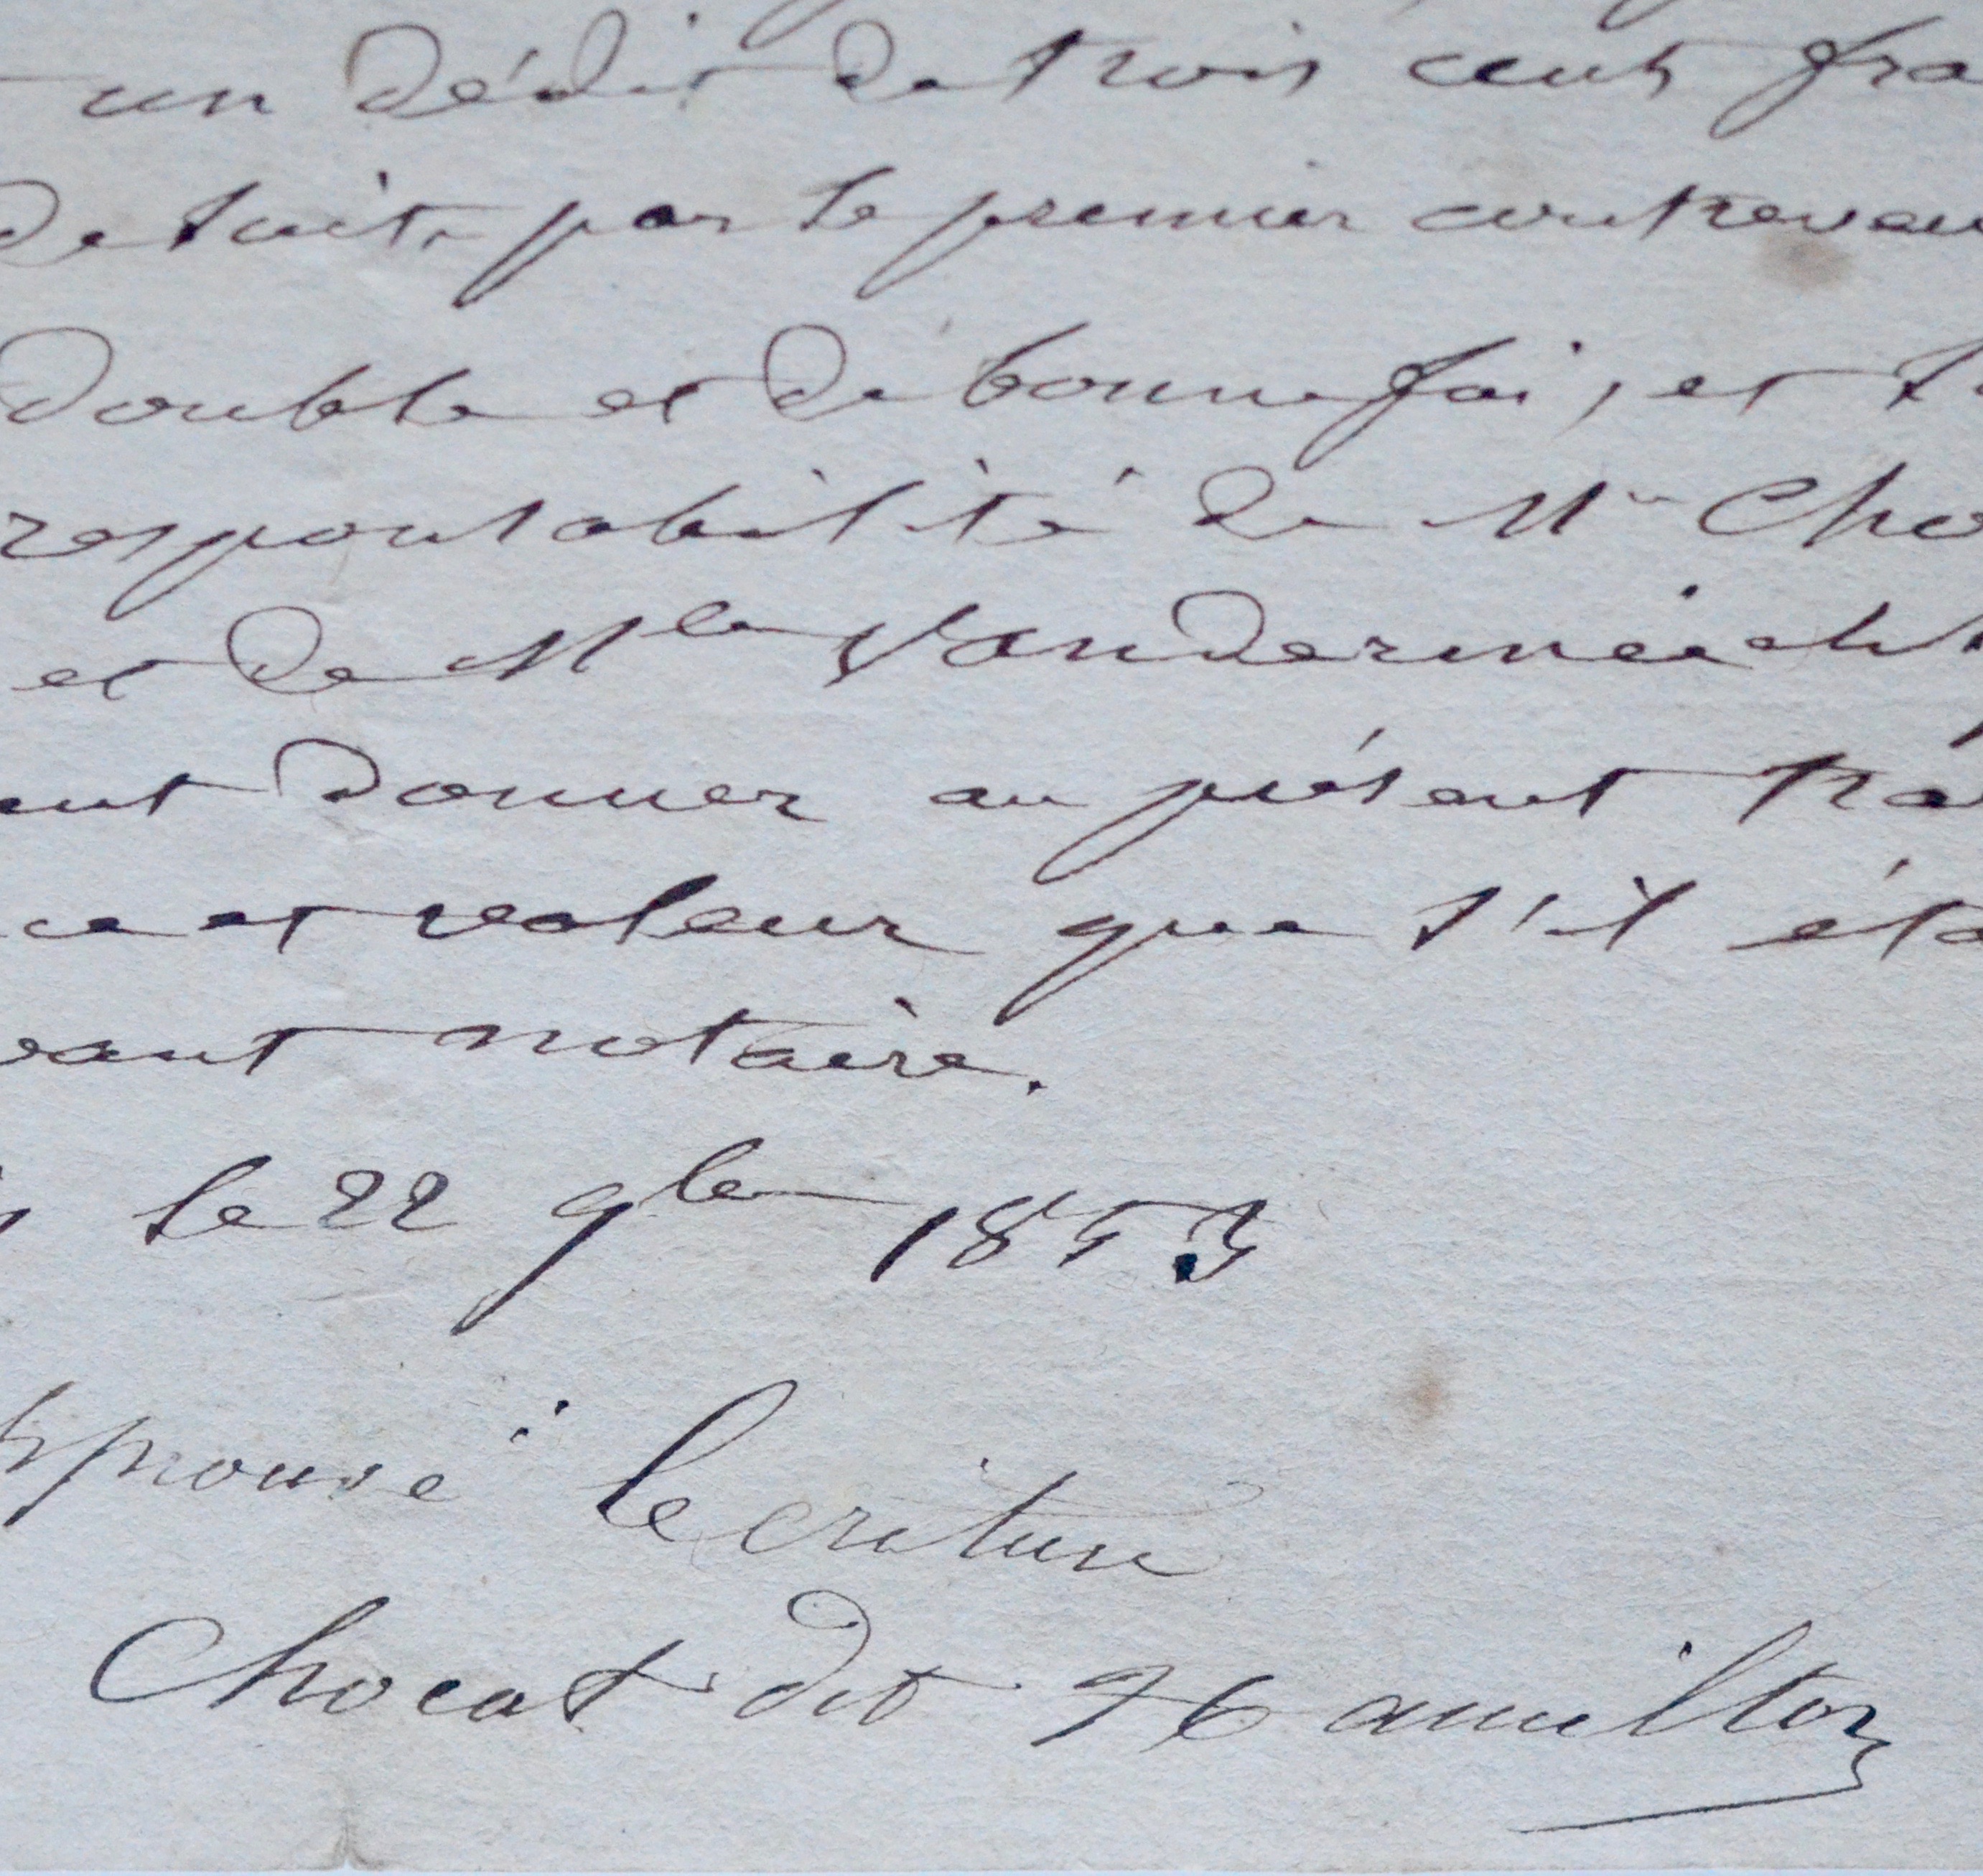 un dédit de trois cents fra
de suite, par le premier contreven
double et de bonne foi, et
responsabilité de Mr Cho
et de Mlle Vanderméich
ant donner au présent tra
ce et valeur que s'il éta
vant notaire.
le 22 9bre 1853
approuvé lecriture
Chocat dit Hamilton